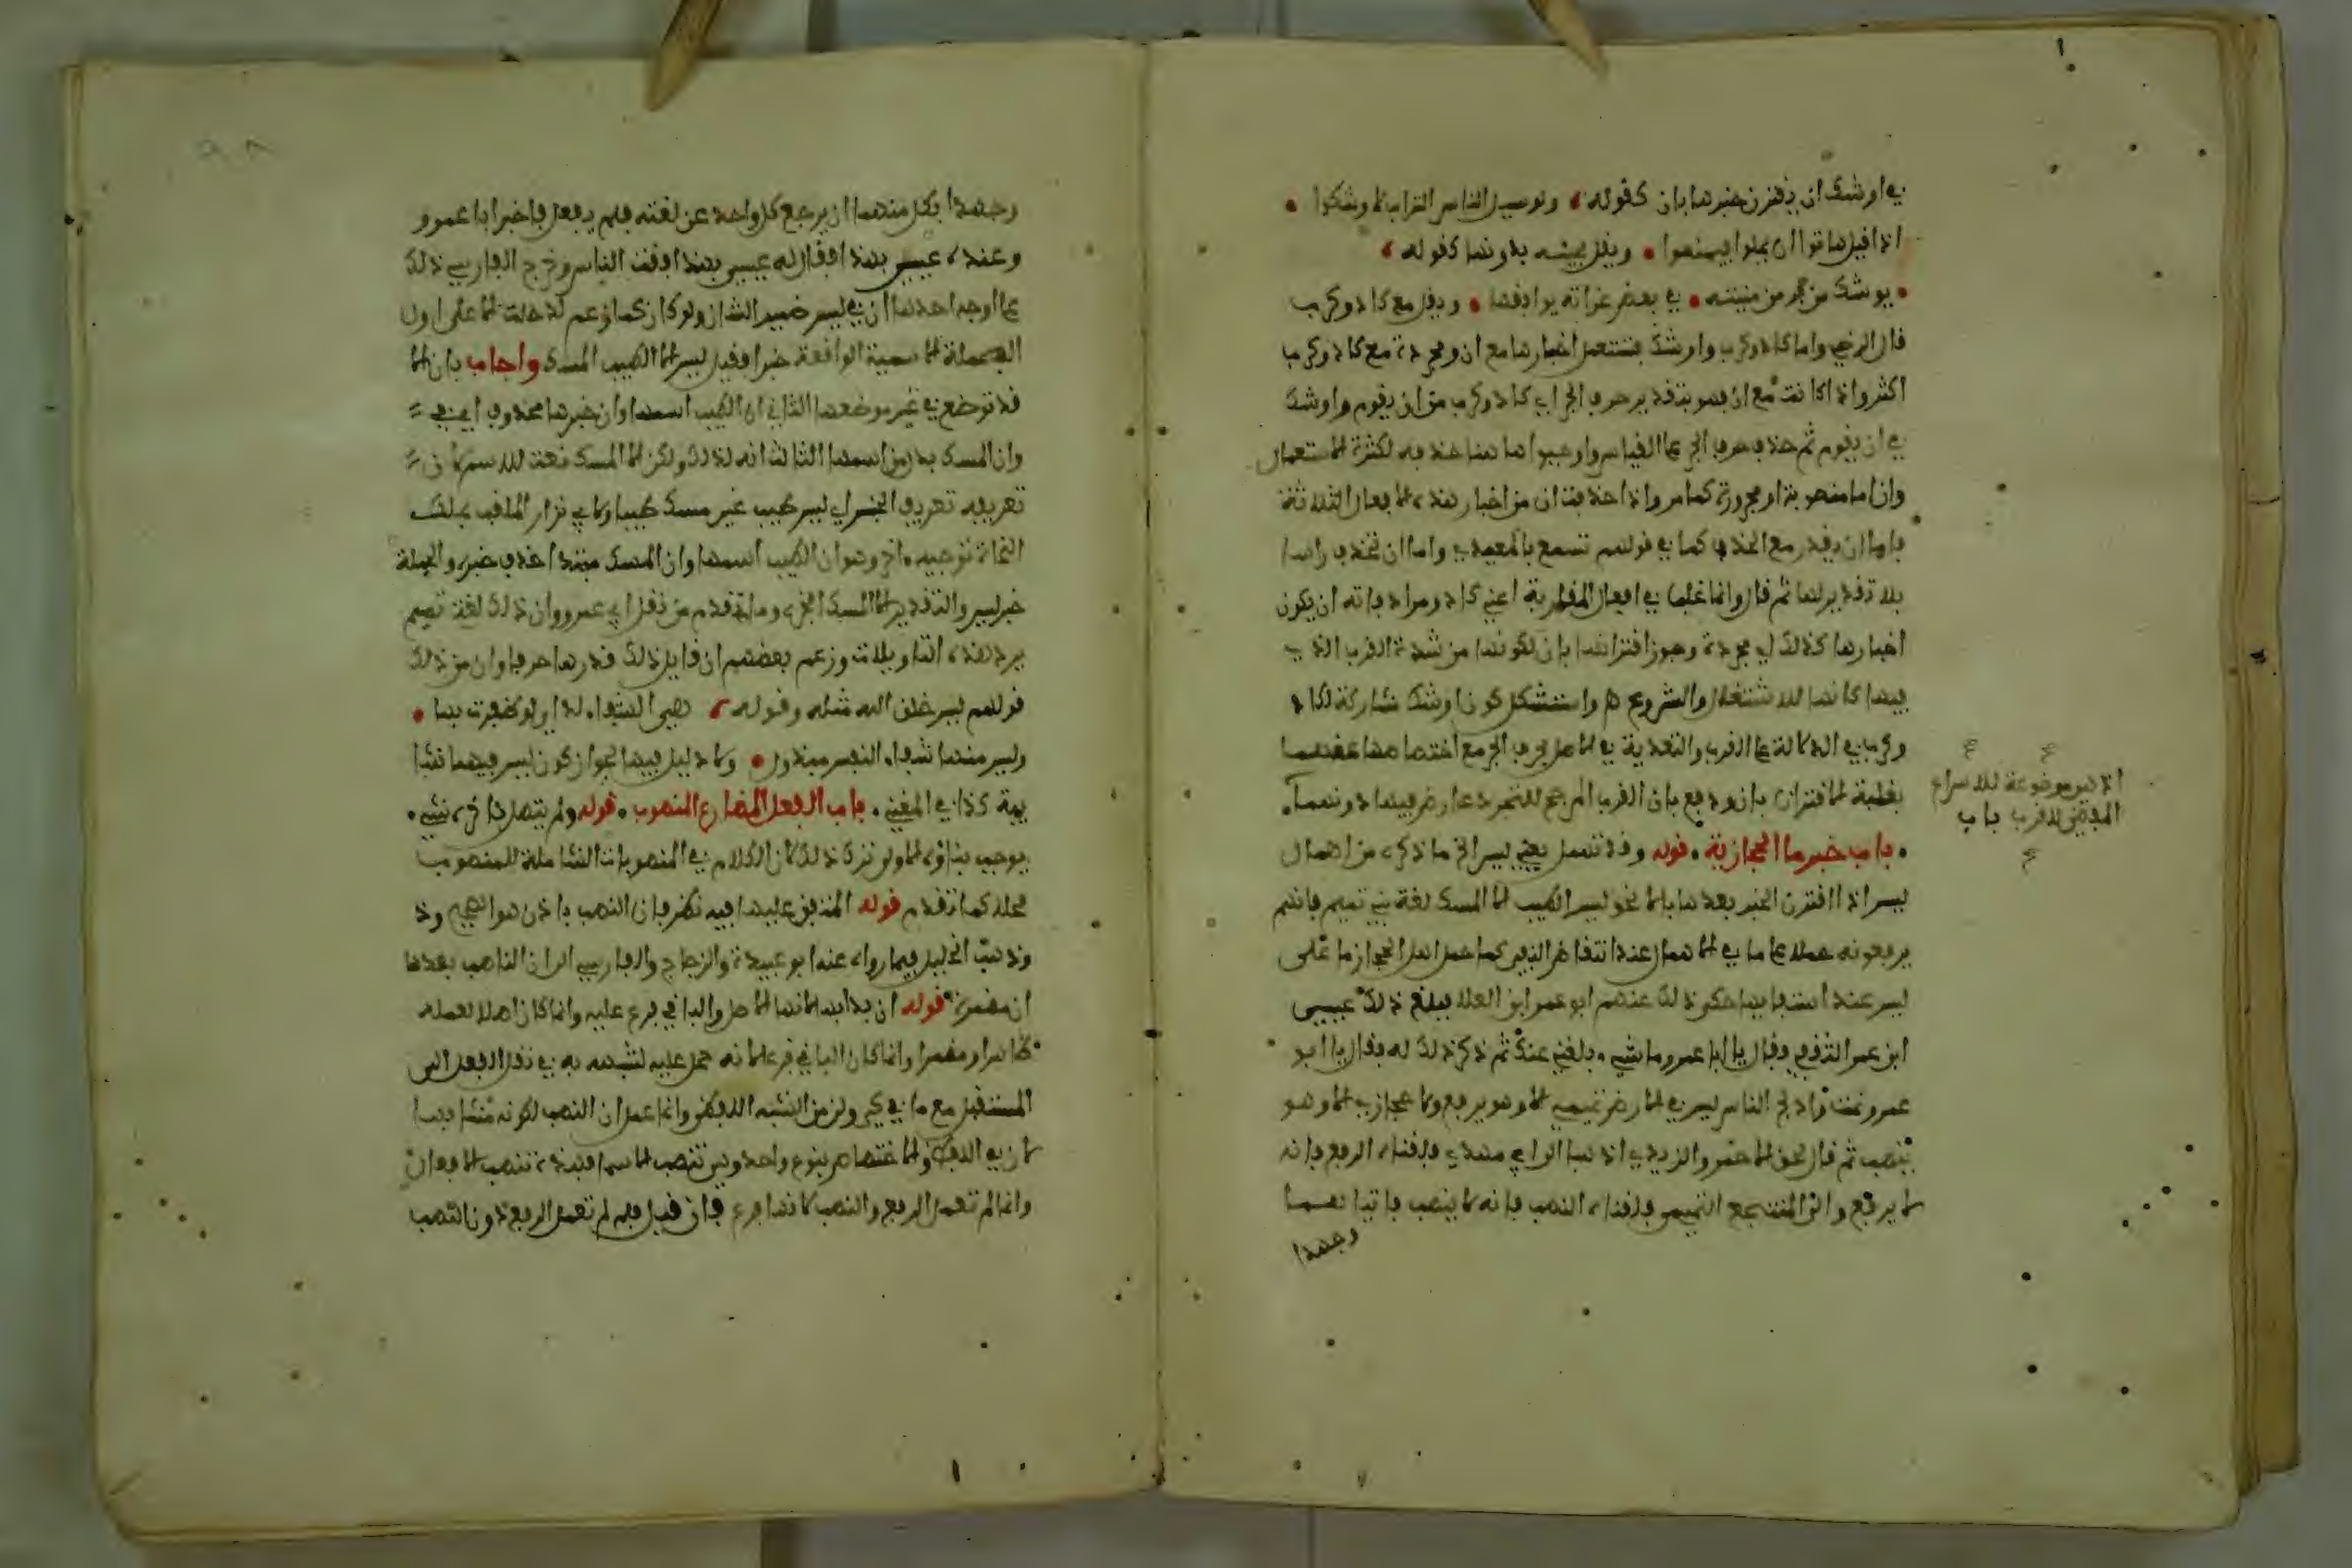 في اوشك ان يقترن خبرها بان كقوله ولو سيل الناس التراب لاوشكوا
اذا قيل هاتوا ان يملوا ويمنعوا ويقل مجيئه بدونها كقوله
يوشك من فر من منيته في بعض غراته يوافقها ويقل مع كاد وكرب
قال الرضي واما كاد وكرب واوشك فتستعمل اخبارها مع ان ومجردة مع كاد وكرب
اكثر واذا كانت مع ان فهو بتقدير حرف الجر اي كاد وكرب من ان يقوم واوشك
في ان يقوم ثم حذف حرف الجر على القياس واوجبوا هاهنا حذفه لكثرة الاستعمال
وان اما منصوبة او مجرورة كما مر واذا حذفت ان من اخبار هذه الافعال الثلاثة
فاما ان يقدر مع الحذف كما في قولهم تسمع بالمعيدي واما ان تحذف راسا
بلا تقدير لها ثم قال وانما غلب في افعال المقاربة اعني كاد ومرادفاته ان يكون
اخبارها كذلك اي مجردة وجوز اقترانها بان لكونها من شدة القرب الذي
فيها كانها للاشتغال والشروع هـ واستشكل كون اوشك مشاركة لكاد
وكرب في الدلالة على القرب والتعدية في الاصل بحرف الجر مع اختصاصها عنهما
بغلبة الاقتران بان ودفع بان القرب المرجح للتجرد عارض فيها دونهما
باب خبر ما الحجازية قوله وقد تهمل يعني ليس الخ ما ذكره من اهمال
ليس اذا اقترن الخبر بعدها بالا نحو ليس الطيب الا المسك لغة بني تميم فانهم
يرفعونه حملا على ما في الاهمال عند انتقاض النفي كما حمل اهل الحجاز ما على
ليس عند استيفائها حكى ذلك عنهم ابو عمر ابن العلا فبلغ ذلك عيسى
ابن عمر الثقفي فقال يا ابا عمرو ما شيء بلغني عنك ثم ذكر ذلك له فقال يا ابو
عمرو نمت وادلج الناس ليس في الارض تميمي الا وهو يرفع ولا حجازي الا وهو
ينصب ثم قال لخلف الاحمر واليزيدي اذهبا الى ابي مهدي فلقناه الرفع فانه
لا يرفع والى المنتجع التميمي فلقناه النصب فانه لا ينصب فاتيا هما
وجهدا
الاخير موضوعة للاسراع
المفضي للقرب باب
وجهدا بكل منهما ان يرجع كل واحد عن لغته فلم يفعل فاخبرا ابا عمرو
وعنده عيسى بهذا فقال له عيسى بهذا فقت الناس وخرج الفارسي ذلك
على اوجه احدها ان في ليس ضمير الشان ولو كان كما زعم لدخلت الا على اول
الجملة الاسمية الواقعة خبرا فقيل ليس الا الطيب المسك واجاب بان الا
قد توضع في غير موضعها الثاني ان الطيب اسمها وان خبرها محذوف اي في
وان المسك بدل من اسمها الثالث انه كذلك ولكن الا المسك نعت للاسم لان
تعريفه تعريف الجنس اي ليس طيب غير مسك طيبا ولابي نزار الملقب بملك
النحاة توجيه اخر وهو ان الطيب اسمها وان المسك مبتدا حذف خبره والجملة
خبر ليس والتقدير الا المسك افخره وما تقدم من نقل ابي عمرو وان ذلك لغة تميم
يرد هذه التاويلات وزعم بعضهم ان قايل ذلك قدرها حرفا وان من ذلك
قولهم ليس خلق الله مثله وقوله هي الشفاء لداي لو ظفرت بها
وليس منها شفاء النفس مبذول ولا دليل فيها لجواز كون ليس فيهما شانا
ية كذا في المغني باب الفعل المضارع المنصوب قوله ولم يتصل باخره شيء
يوجب بناؤه الاولى ترك ذلك لان الكلام في المنصوبات الشاملة للمنصوب
محلا كما تقدم قوله المتفق عليها فيه نظر فان النصب باذن هو الصحيح وذ
وذهب الخليل فيما رواه عنه ابو عبيدة والزجاج والفارسي الى ان الناصب بعدها
ان مضمرة قوله ان بدا بها لانها الاصل والباقي فرع عليه وانما كان اصلا لعمله
ظاهرا ومضمرا وانما كان الباقي فرعا لانه حمل عليه لشبهه به في نقل الفعل الى
المستقبل مع ما في كي ولن من الشبه اللفظي وانما عمل ان النصب لكونه مشابها
لان في اللفظ والاختصاص بنوع واحد وهي تنصب الاسما فهذه تنصب الافعال
وانما لم تعمل الرفع والنصب لانها فرع فان قيل فلم لم تعمل الرفع دون النصب